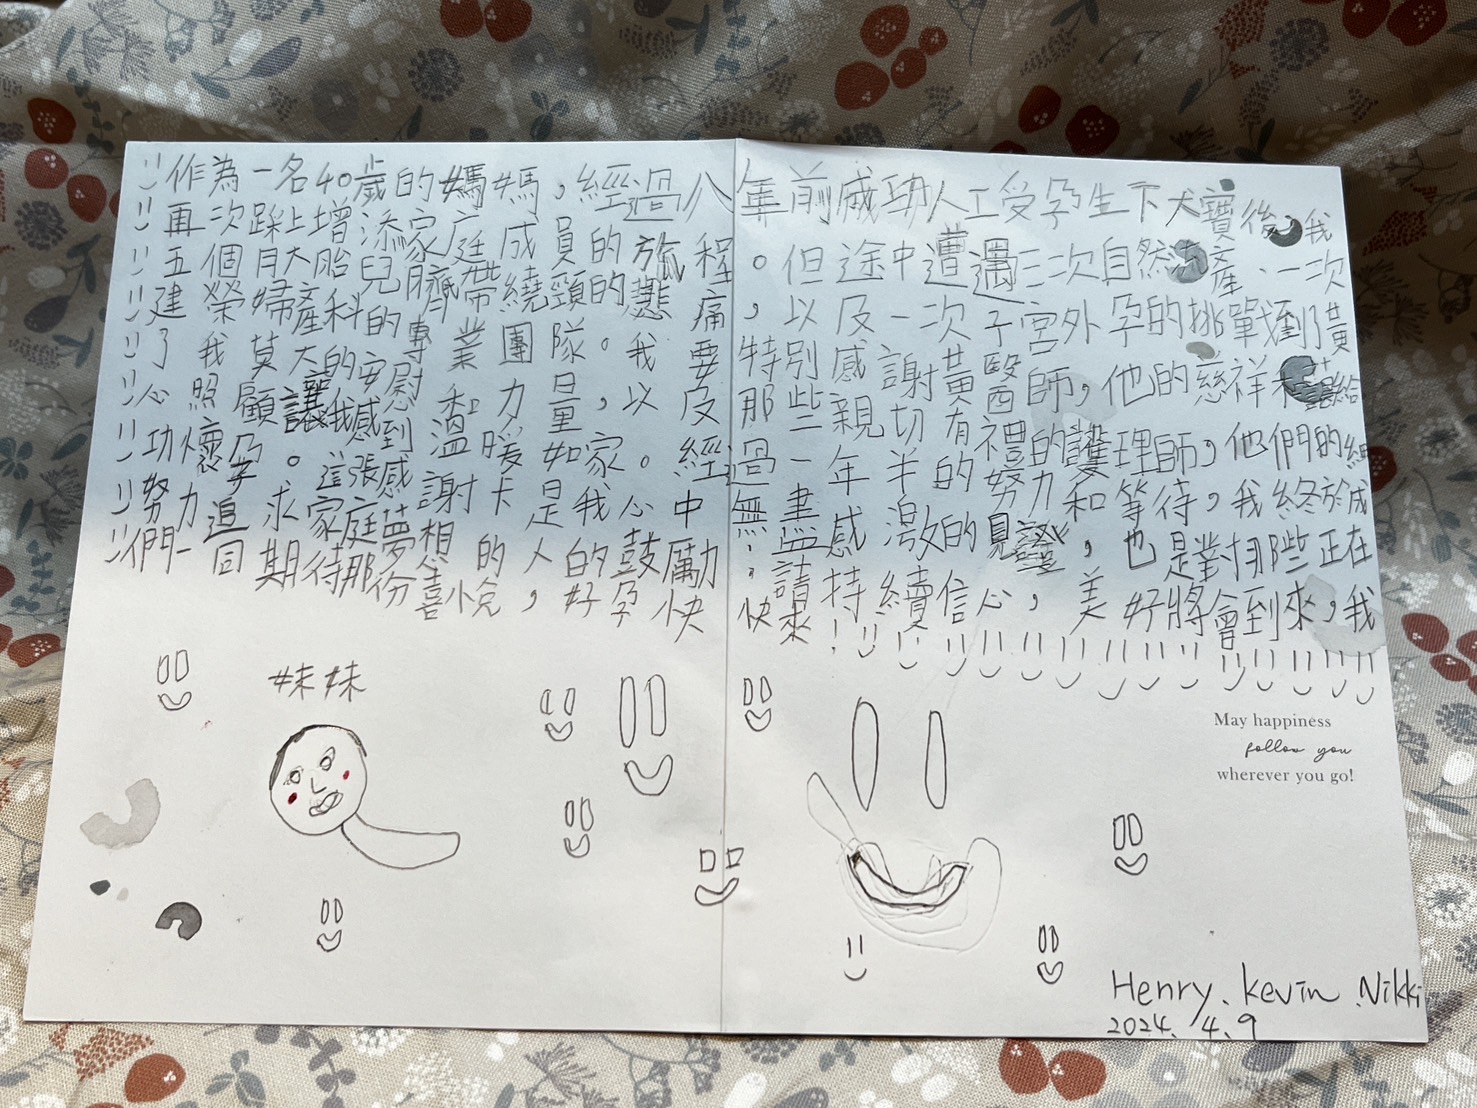 作為一名40歲的媽媽,經過八年前成功人工受孕生下犬寶後,我
再次踩上增添家庭成員的旅程。但途中遭遇三次自然流產、一次
五個月大胎兒臍帶繞頸的悲痛,以及一次子宮外孕的挑戰到了黃
建榮婦產科的專業團隊。我要特別感謝黃醫師,他的慈祥和藹給
了我莫大的安慰和力量,以及那些親切有禮的護理師,他們的細
心照顧讓我感到溫暖如家。經過一年半的努力和等待,我終於成
功懷孕。這張感謝卡是我心中無盡感激的見證,也是對那些正在
努力追求家庭夢想的人的鼓勵,請持續信心,美好將會到來,我
們一同期待那份喜悅,好孕快快來!
妹妹
May happiness
follow you
wherever you go!
Henry、Kevin、Nikki
2024.4.9